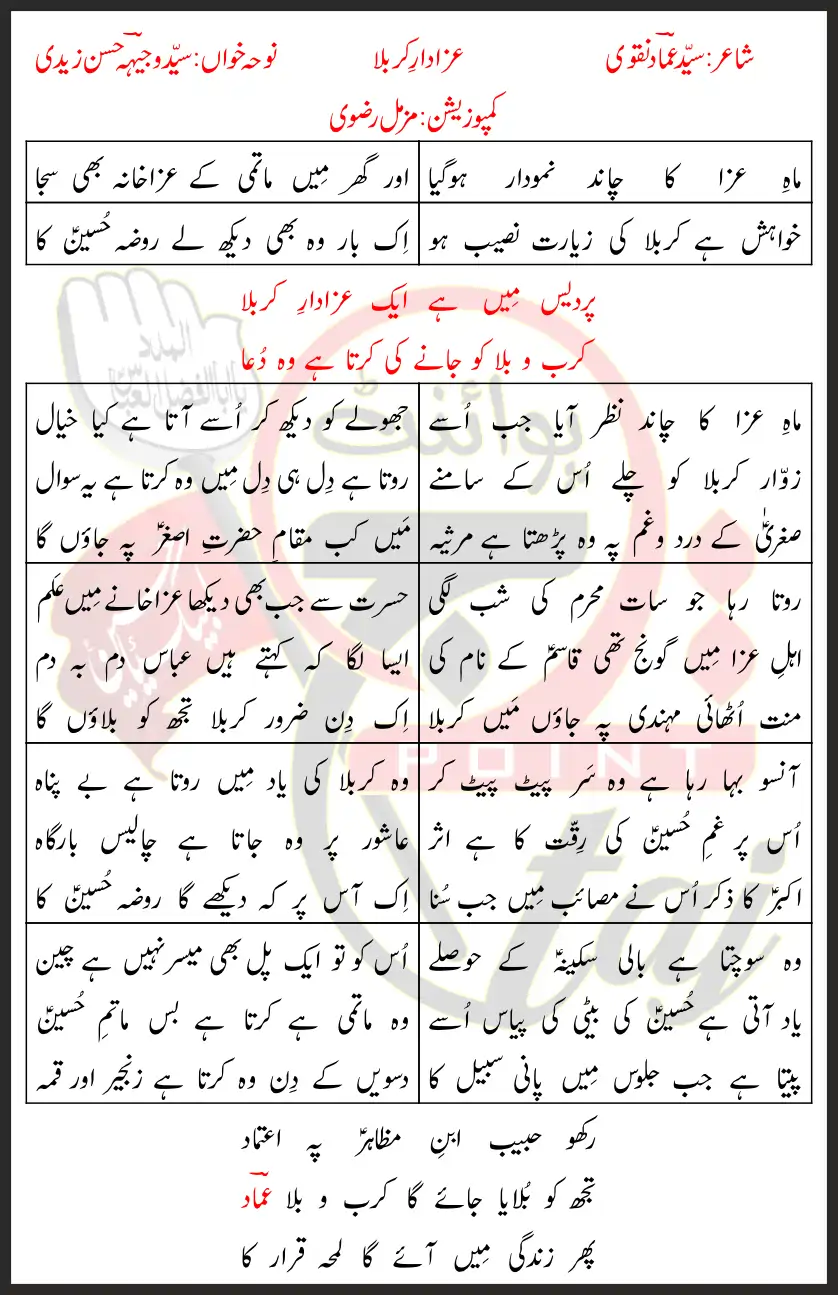 شاعر: سیّد عمادؔ نقوی عزادارِ کربلا نوحہ خواں: سیّد وجیہہؔ حسن زیدی
کمپوزیشن: مزمل رضوی
ماہِ عزا کا چاند نمودار ہوگیا اور گھر مِیں ماتمی کے عزاخانہ بھی سجا
خواہش ہے کربلا کی زیارت نصیب ہو اِک بار وہ بھی دیکھ لے روضہ حُسینؑ کا
پردیس مِیں ہے ایک عزادارِ کربلا
کرب و بلا کو جانے کی کرتا ہے وہ دُعا
ماہِ عزا کا چاند نظر آیا جب اُسے
زوّار کربلا کو چلے اُس کے سامنے
صغریٰؑ کے درد و غم پہ وہ پڑھتا ہے مرثیہ
جھولے کو دیکھ کر اُسے آتا ہے کیا خیال
روتا ہے دِل ہی دِل مِیں وہ کرتا ہے یہ سوال
مَیں کب مقامِ حضرتِ اصغرؑ پہ جاؤں گا
روتا رہا جو سات محرم کی شب لگی
اہلِ عزا مِیں گونج تھی قاسمؑ کے نام کی
منت اُٹھائی مہندی پہ جاؤں مَیں کربلا
حسرت سے جب بھی دیکھا عزاخانے مِیں علم
ایسا لگا کہ کہتے ہیں عباس دم بہ دم
اِک دِن ضرور کربلا تجھ کو بلاؤں گا
آنسو بہا رہا ہے وہ سَر پیٹ پیٹ کر
اُس پر غمِ حُسینؑ کی رِقّت کا ہے اثر
اکبرؑ کا ذکر اُس نے مصائب مِیں جب سُنا
وہ کربلا کی یاد مِیں روتا ہے بے پناہ
عاشور پر وہ جاتا ہے چالیس بارگاہ
اِک آس پر کہ دیکھے گا روضہ حُسینؑ کا
وہ سوچتا ہے بالی سکینہؑ کے حوصلے
یاد آتی ہے حُسینؑ کی بیٹی کی پیاس اُسے
پیتا ہے جب جلوس مِیں پانی سبیل کا
اُس کو تو ایک پل بھی میسر نہیں ہے چین
وہ ماتمی ہے کرتا ہے بس ماتمِ حُسینؑ
دسویں کے دِن وہ کرتا ہے زنجیر اور قمہ
رکھو حبیب ابنِ مظاہرؑ پہ اعتماد
تجھ کو بُلایا جائے گا کرب و بلا عمادؔ
پھر زندگی مِیں آئے گا لمحہ قرار کا
المدد
یا ابا الفضل العباسؑ
پوائنٹ
POINT
taj